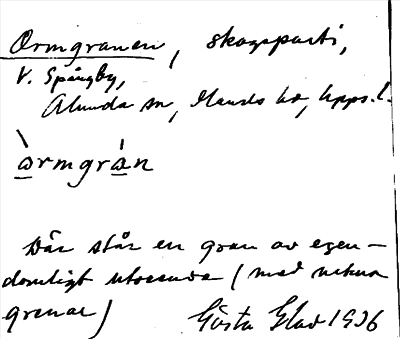 Ormgranen, skogsparti,
V. Spångby,
Alunda sn, Olands hd, Upps. l.
òrmgrán
Där står en gran av egen-
domligt utseende (med vekna
grenar) Gösta Elad 1936